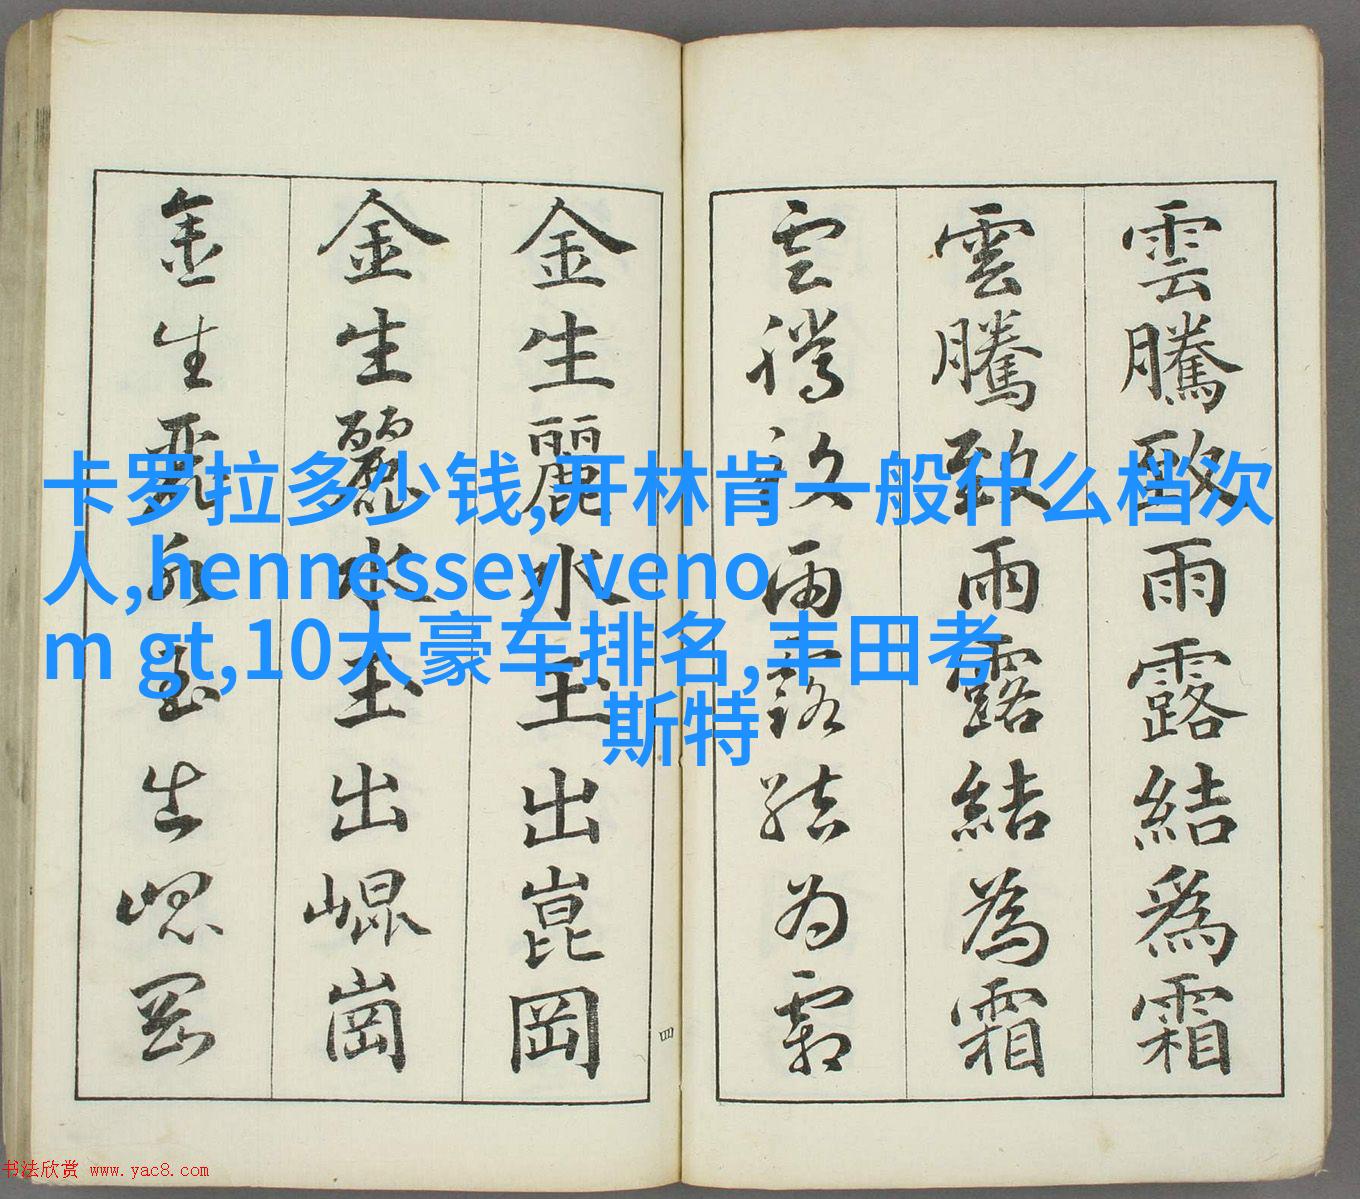 雲騰致雨露結為霜
雲騰致雨露結為霜
雲騰致雨露结为霜
金生麗水玉出崑岡
金生麗水玉出崐崗
金生麗水玉出崐岡
四
卡罗拉多少钱,开林肯一般什么档次
人,hennessey veno
m gt,10大豪车排名,丰田考
斯特
书法欣赏 www.yac8.com